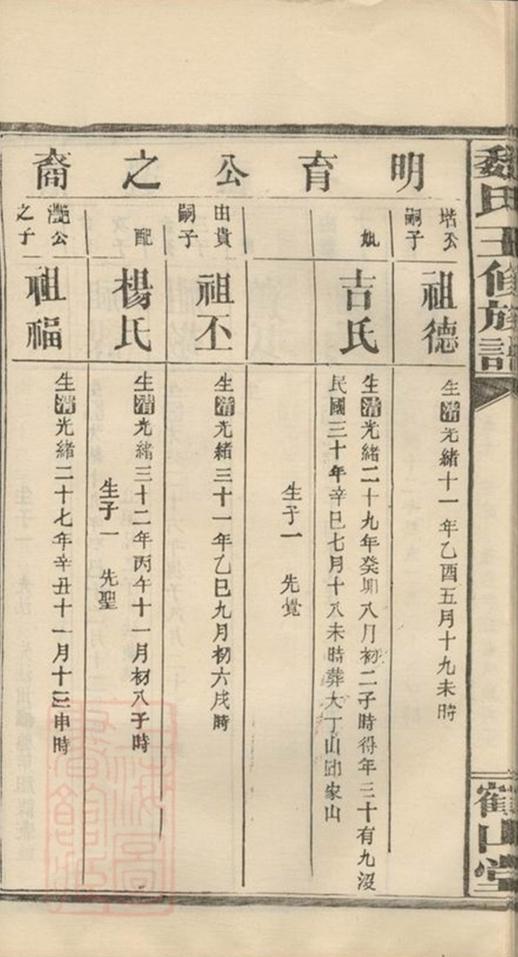 魏氏三修族譜
鶴山堂
明育公之裔
塔公嗣子
祖德
生清光緒十一年乙酉五月十九未時
娶
吉氏
生清光緒二十九年癸卯八月初二子時得年三十有九沒
民國三十年辛巳七月十八未時葬大丁山邱家山
生子一 先覺
由貴嗣子
祖丕
生清光緒三十一年乙巳九月初六戌時
配
楊氏
生清光緒三十二年丙午十一月初八子時
生子一 先聖
公之子
祖福
生清光緒二十七年辛丑十一月十三申時